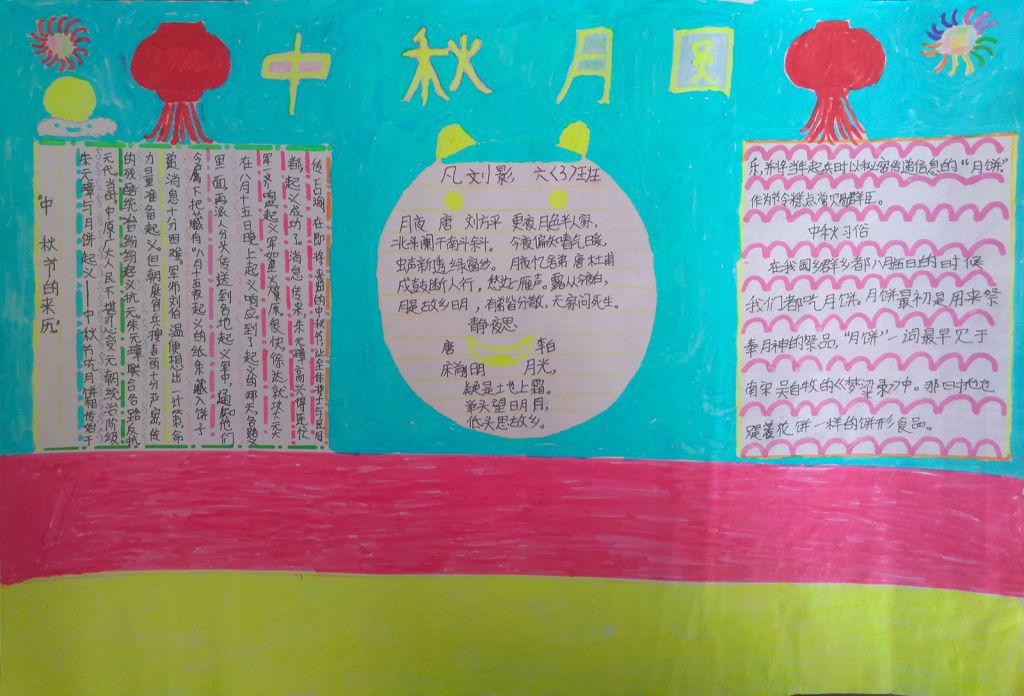 中秋月圆
"中秋节的来历"
朱元璋与月饼起义——中秋节吃月饼相传始于
元代。当时,中原广大人民不堪忍受元朝统治阶级
的残酷统治,纷纷起义抗元。朱元璋联合各路反抗
力量准备起义。但朝廷官兵搜查的十分严密,传
递消息十分困难。军师刘伯温便想出一计策,命
令属下把藏有"八月十五夜起义"的纸条藏入饼子
里面,再派人分头传送到各地起义军中,通知他们
在八月十五日晚上起义响应。到了起义的那天,各路义
军一齐响应,起义军如星火燎原。很快,徐达就攻下元大
都,起义成功了。消息传来,朱元璋高兴得连忙
传下口谕,在即将来临的中秋节,让全体将士与民同
凡刘影 六〈3〉班
月夜 唐 刘方平 更夜月色半人家,
北斗阑干南斗斜。 今夜偏知春气暖,
虫声新透绿窗纱。 月夜忆舍弟 唐 杜甫
戍鼓断人行, 边一雁声。露从今夜白,
月是故乡明, 有弟皆分散,无家问死生。
静夜思
唐 李白
床前明月光,
疑是地上霜。
举头望明月,
低头思故乡。
乐,并将当年起兵时以秘密传递信息的"月饼"
作为节令糕点赏赐群臣。
中秋习俗
在我国乡群乡都八月届日的时候
我们都吃月饼。月饼最初是用来祭
奉月神的祭品,"月饼"一词最早见于
南宋吴自牧的《梦梁录》中。那时,它也
是着花饼一样的饼形食品。